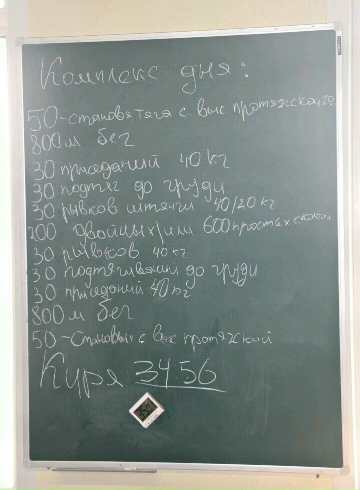 Комплекс дня:
50-становая тяга с выс протяжкой
800м бег
30 приседаний 40 кг
30 подтяг до груди
30 рывков штанги 40/20 кг
200 двойных/или 600 простых скакал
30 рывков 40 кг
30 подтягивания до груди
30 приседаний 40 кг
800м бег
50-Становых с выс протяжкой
Куря 34 56